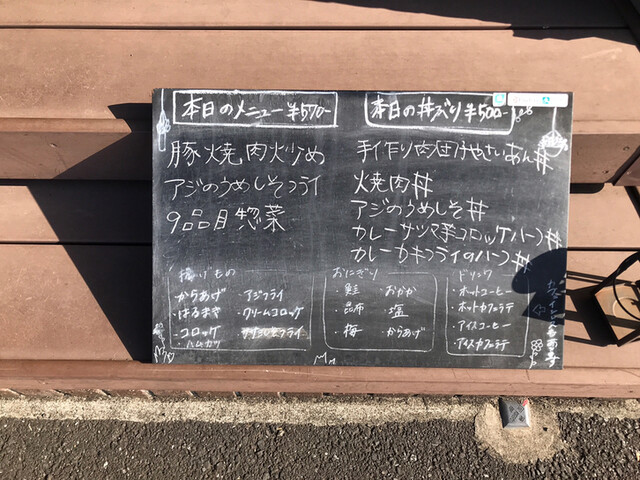 本日のメニュー ¥570-
豚焼肉炒め
アジのうめしそフライ
9品目惣菜
本日の丼ぶり ¥500-
手作り肉だけやさいあん丼
焼肉丼
アジのうめしそ丼
カレー サツマ芋コロッケハーフ丼
カレー カキフライのハーフ丼
揚げもの
・からあげ ・アジフライ
・はるまき ・クリームコロッケ
・コロッケ
・ハムカツ
おにぎり
・鮭 ・おかか
・昆布 ・塩
・梅 ・からあげ
ドリンク
・ホットコーヒー
・ホットカフェラテ
・アイスコーヒー
・アイスカフェラテ